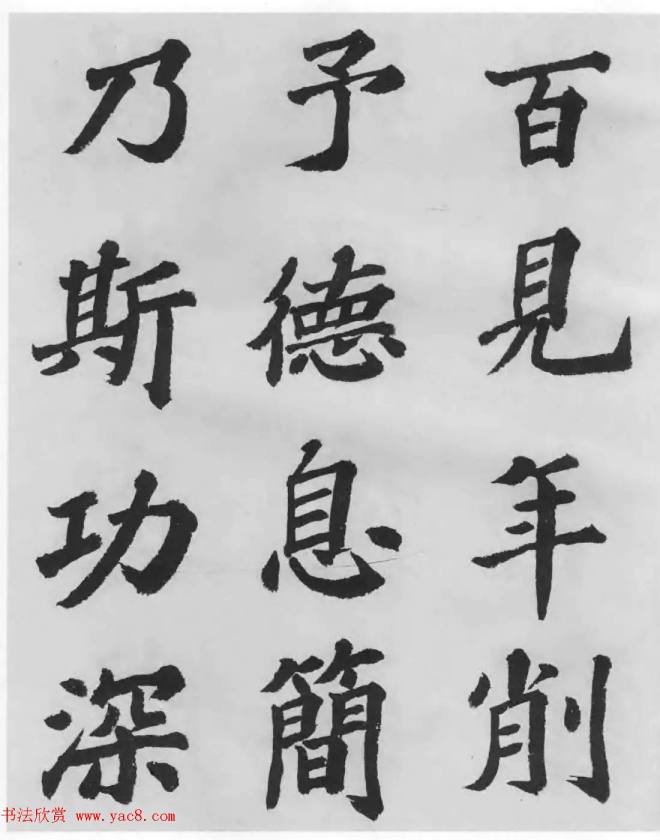 百見年削
予德息簡
乃斯功深
书法欣赏 www.yac8.com